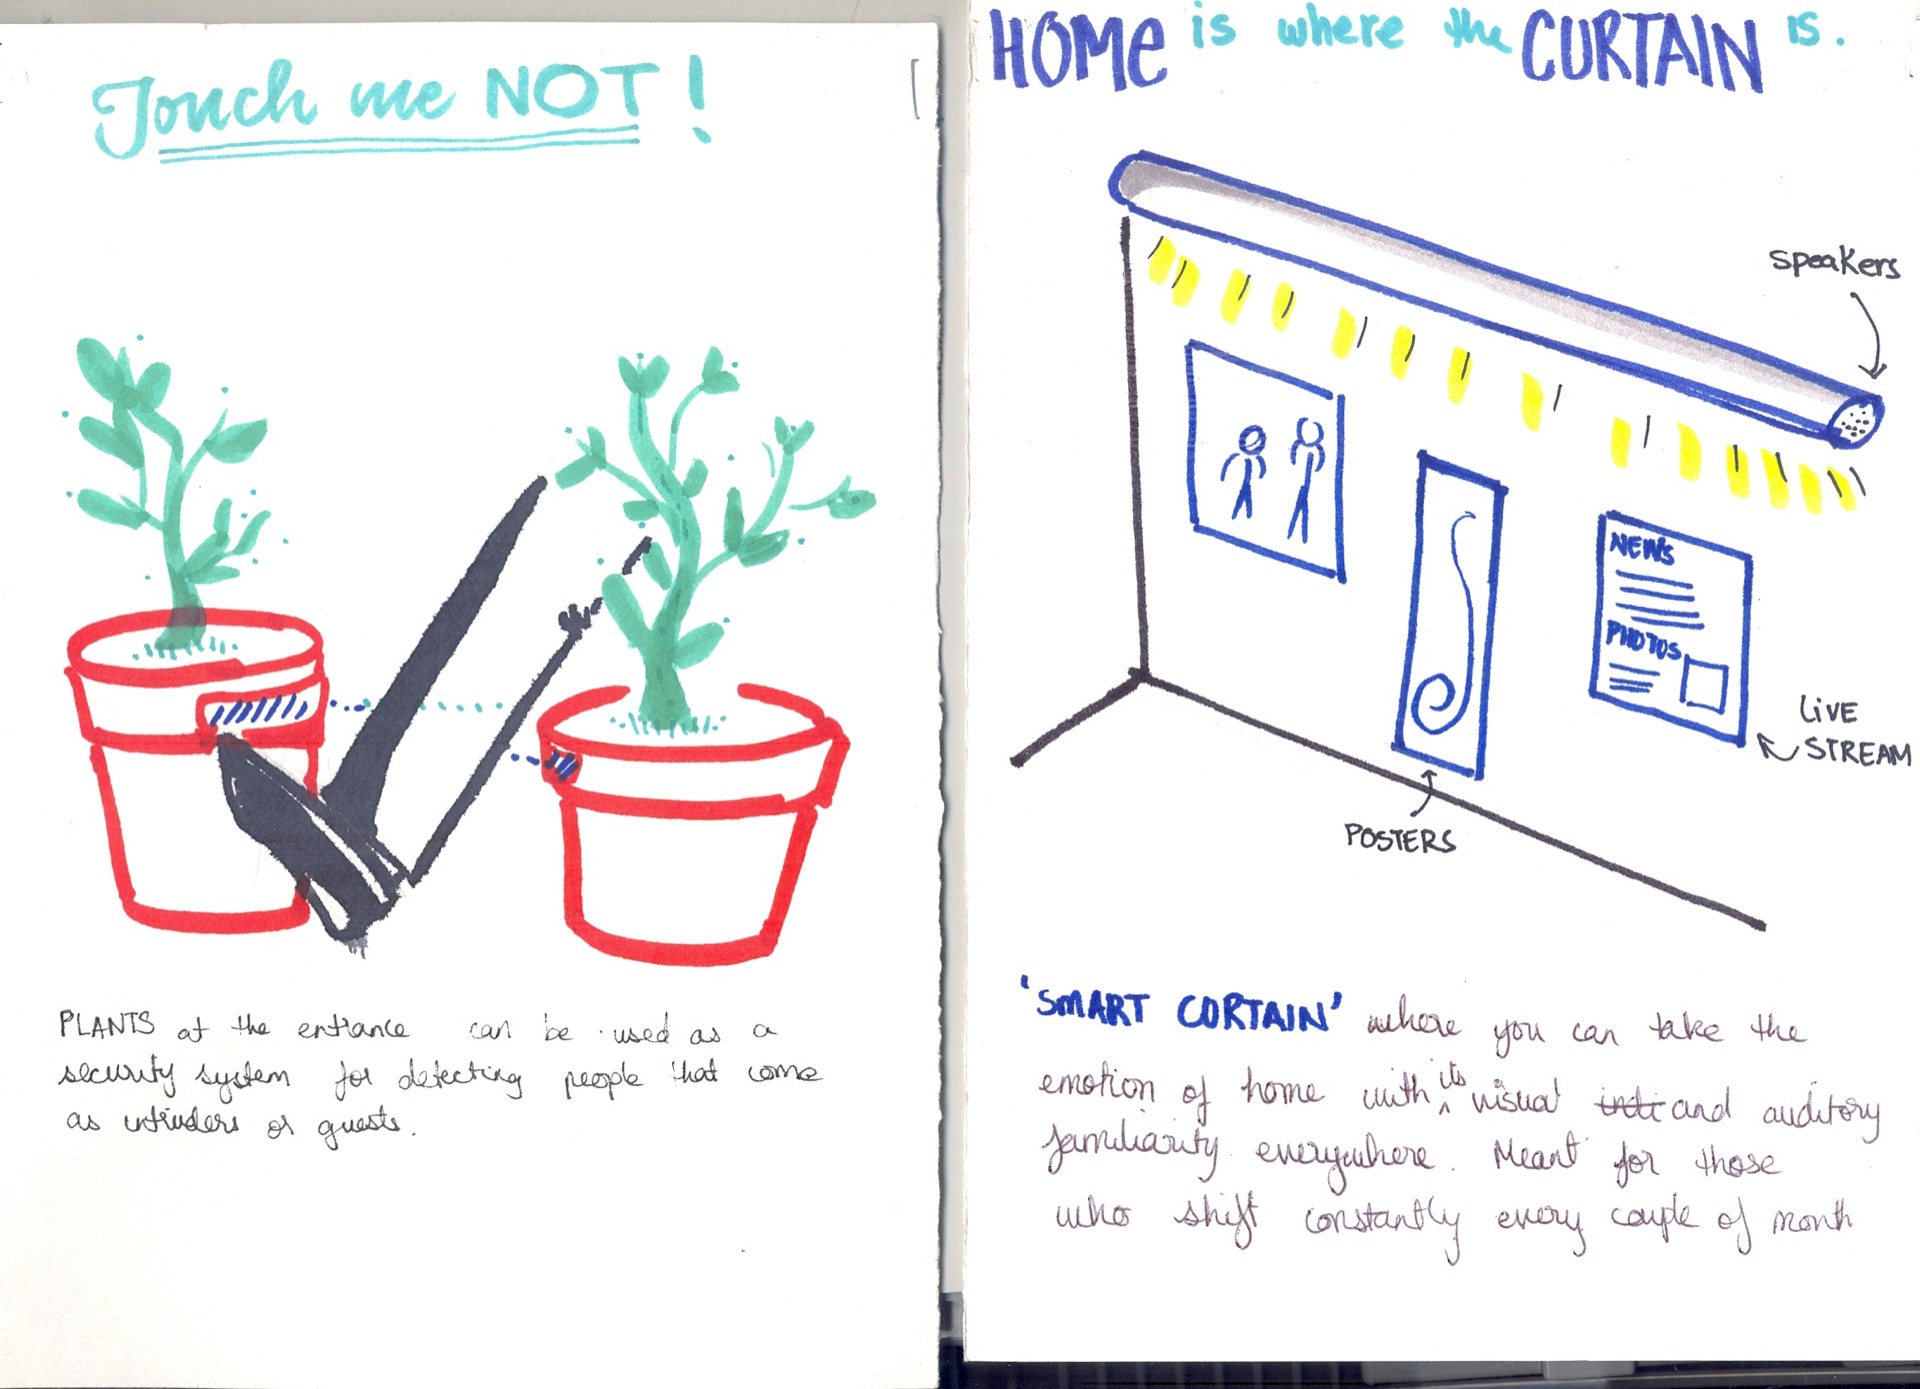 Touch me NOT!
PLANTS at the entrance can be used as a
security system for detecting people that come
as intruders or guests.
HOME is where the CURTAIN is.
speakers
NEWS
PHOTOS
LIVE
STREAM
POSTERS
'SMART CURTAIN' where you can take the
emotion of home with its visual and auditory
familiarity everywhere. Meant for those
who shift constantly every couple of month